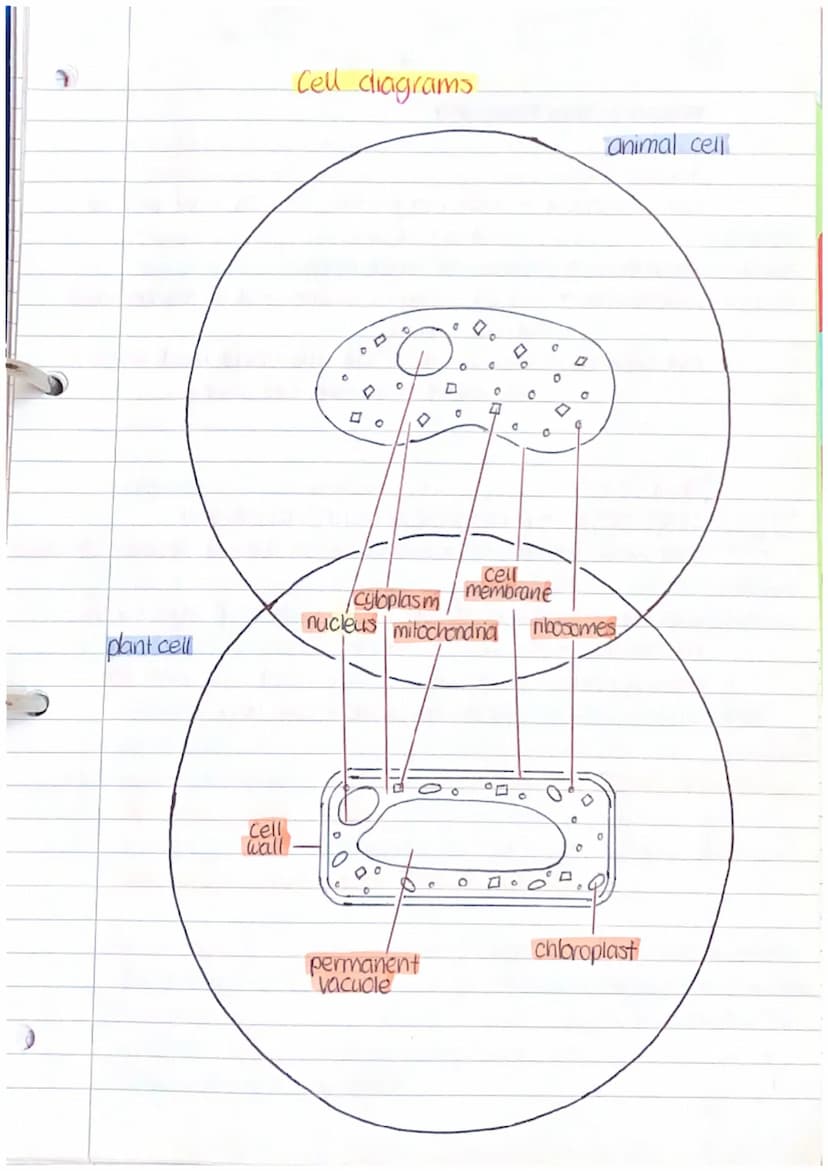 Cell diagrams
animal cell
cell
membrane
cytoplasm
nucleus
mitochondria
ribosomes
plant cell
cell
wall
chloroplast
permanent
vacuole